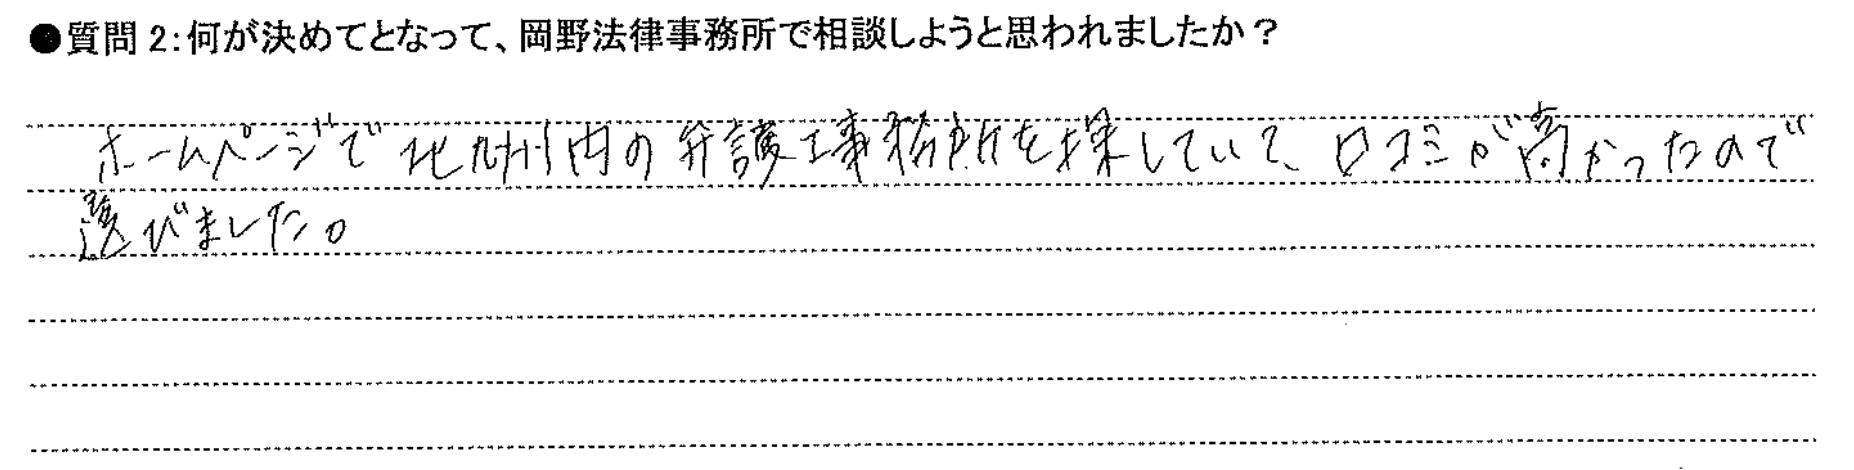 ●質問 2:何が決めてとなって、岡野法律事務所で相談しようと思われましたか？
ホームページで北九州内の弁護士事務所を探していて、口コミが高かったので
選びました。